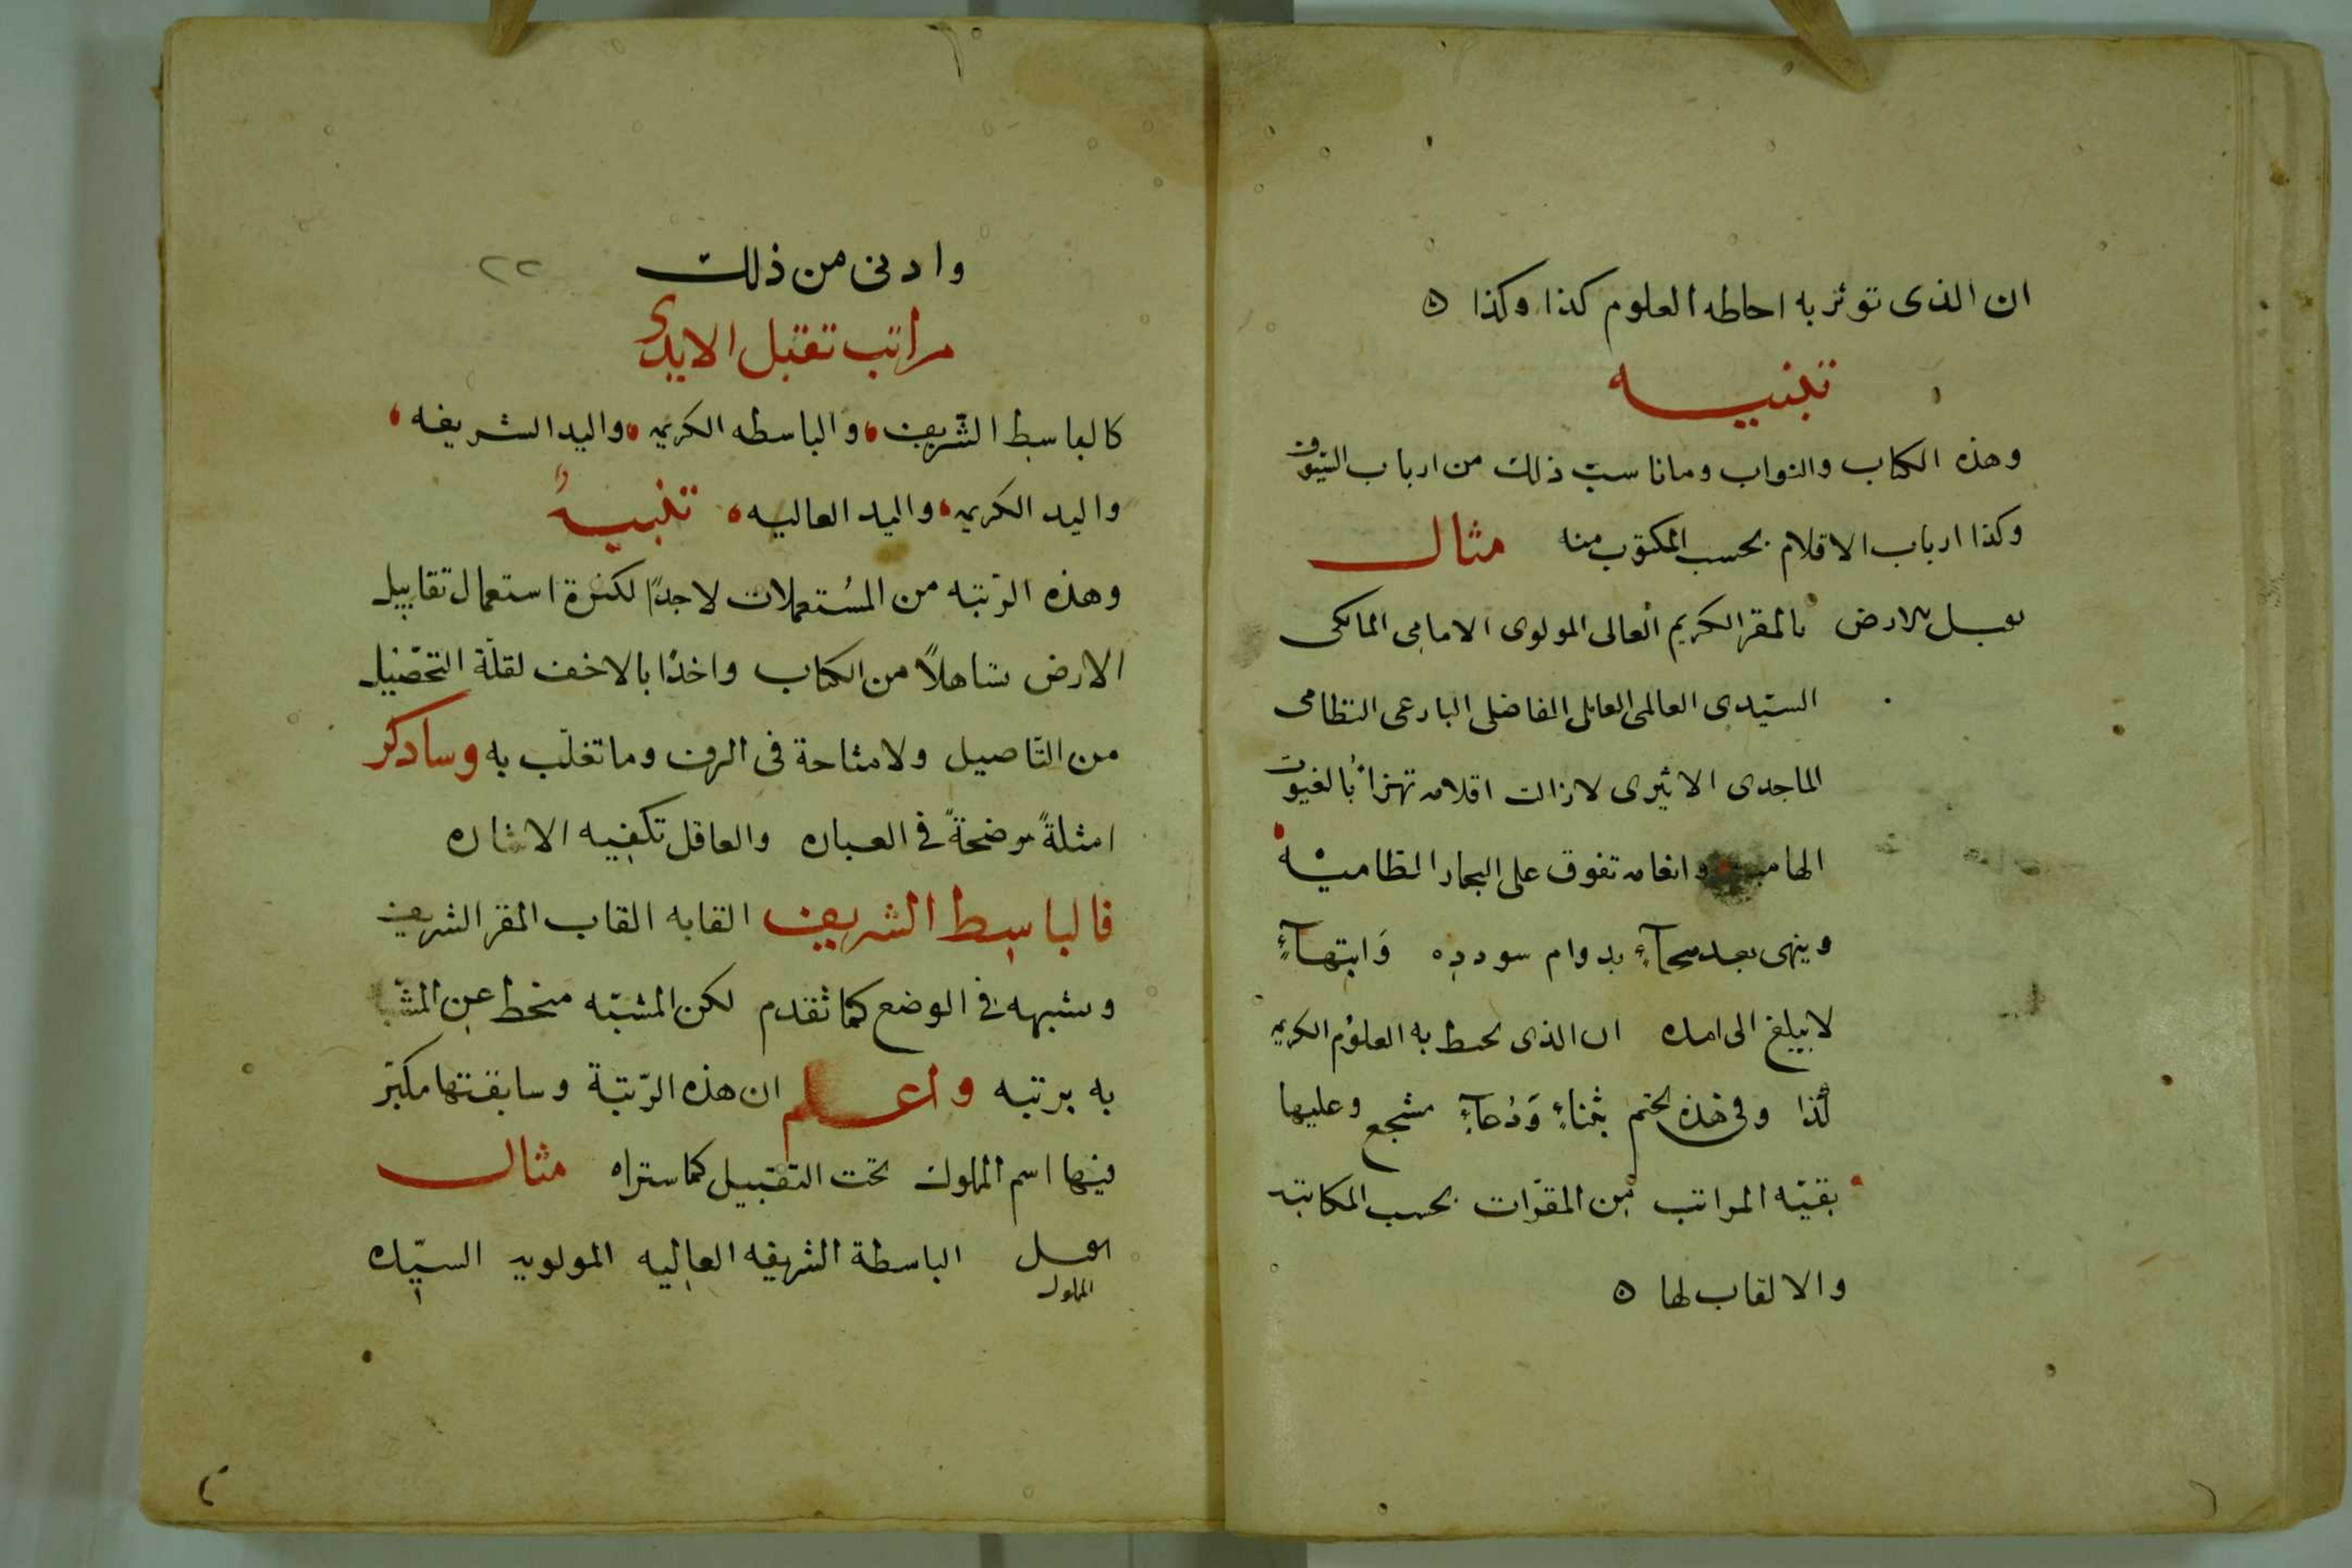 ان الذى توثر به احاطه العلوم كذا وكذا ه
تنبيه
وهذه الكتاب والنواب وماناسب ذلك من ارباب السيوف
وكذا ارباب الاقلام بحسب المكتوب منه مثال
يقبل الارض بالمقر الكريم العالى المولوى الامامى المالكى
السيّدى العالمى العاملى الفاضلى البارعى النظامى
الماجدى الاثيرى لازالت اقلامه تهزأ بالغيوث
الهاميه وانعامه تفوق على البحار الطاميه
وينهى بعد دعآءٍ بدوام سودده وَابتهآءٍ
لايبلغ الى امده ان الذى يحيط به العلوم الكريمه
كذا وفى هذه يختم بثناءٍ وَدُعآءٍ مسجع وعليها
بقيّه المراتب من المقرّات بحسب المكاتبه
والالقاب لها ه
وادنى من ذلك
٢٢
مراتب تقبل الايدى
كالباسط الشّريف والباسطه الكريمه واليد الشريفه
واليد الكريمه واليد العاليه تنبيهٌ
وهذه الرّتبه من المُستعملات لاجدًا لكثرة استعمال تقابيل
الارض تساهلاً من الكتاب واخذًا بالاخف لقلّة التحصيل
من التّاصيل ولامشاحة فى العرف وماتغلّب به وساذكر
امثلةً موضحةً فى العباره والعاقل تكفيه الاشاره
فالباسط الشريف القابه القاب المقر الشريف
وشبهه فى الوضع كما تقدم لكن المشبّه منحط عن المشبه
به برتبه واعلم ان هذه الرّتبة وسابقتها يكتب
فيها اسم المملوك تحت التقبيل كما ستراه مثال
يقبل الباسطة الشريفه العاليه المولويه السيّده
المملوك